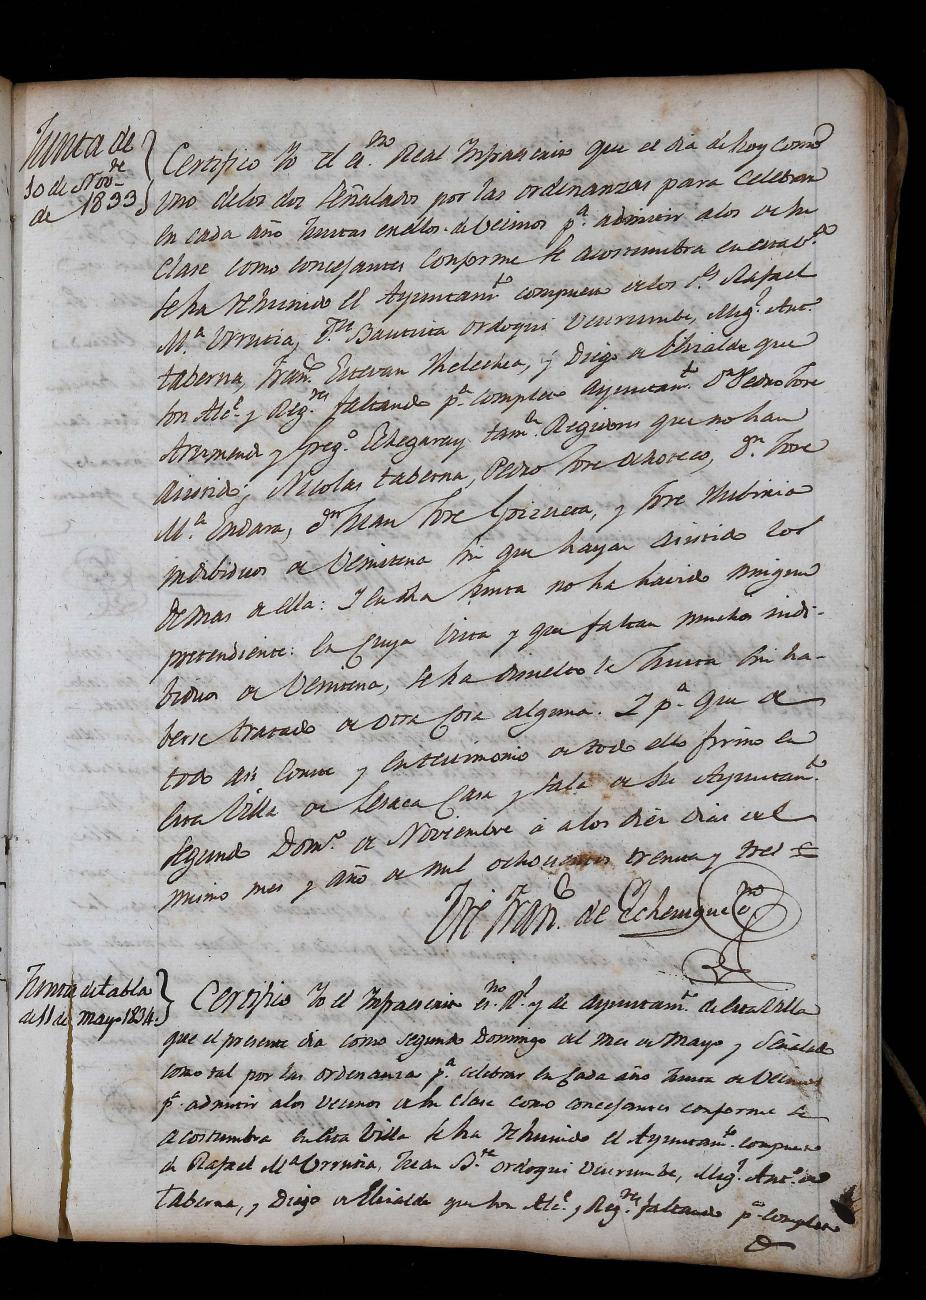 Junta de
10 de Nov.re
de 1833
Certifico Yo el es.no Real Infraescrito que el dia de hoy como
uno delos dos señalados por las ordenanzas para celebrar
en cada año Juntas en ellos de Vecinos p.a admitir alos de su
clase como concejantes conforme se acostumbra en esta v.a
se ha rehunido el Ayuntam.to compuesto delos S.s Rafael
M.a Urrutia, Bautista Ordoqui Ucurumbe, Mig.l Ant.o
Taberna, Fran.co Estevan Thelechea, y Diego de Elizalde que
son Alc.e y Reg.res faltando p.a completo Ayuntam.to D.n Pedro Jose
y Greg.o Echegaray tam.n Regidores que no han
asistido; Nicolas Taberna, Pedro Jose Ochoteco, d.n Jose
M.a Endara, d.n Juan Jose Goizueta, y Jose Mubinia
indibiduos de Veintena sin que hayan asistido los
demas de ella: Y en dha Junta no ha havido ningun
pretendiente: en cuya vista y que faltan muchos indi-
biduos de Veintena, se ha disuelto la Junta sin ha-
berse tratado de otra cosa alguna. Y p.a que de
todo asi conste y en testimonio de todo ello firmo en
esta Villa de Lesaca Casa y Sala de su Ayuntam.to
segundo Dom.o de Noviembre a alos diez dias del
mismo mes y año de mil ochocientos treinta y tres =
Jose Fran.co de Echenique es.no
Junta de tabla
de 11 de mayo 1834.
Certifico Yo el Infraescrito es.no R.l y de ayuntam.to de esta Villa
que el presente dia como segundo Domingo del mes de Mayo y señalado
como tal por las ordenanza p.a celebrar en cada año Junta de Vecinos
p.a admitir alos vecinos de su clase como concejantes conforme se
acostumbra en esta Villa se ha rehunido el Ayuntam.to compuesto
de Rafael M.a Urrutia, Juan B.ta Ordoqui Ucurumbe, Mig.l Ant.o de
Taberna, y Diego de Elizalde que son Alc.e y Reg.res faltando p.a completo